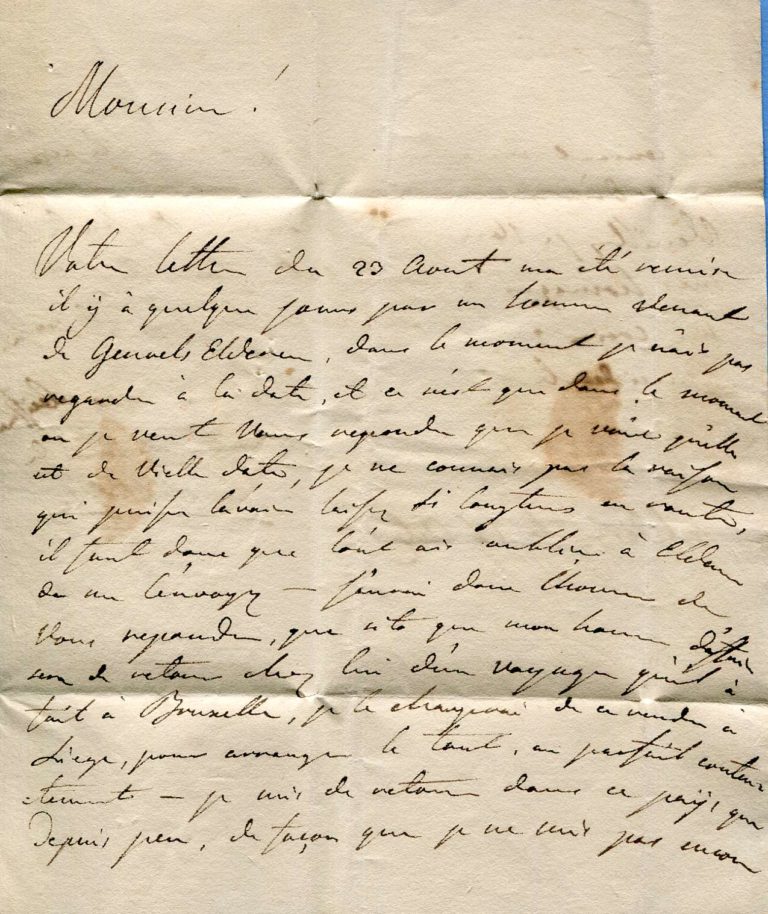 Monsieur!
Votre lettre du 23 Aout ma été remise
il y à quelque jours par un homme venant
de Genoels Elderen, dans le moment je n'ais pas
regarder à la date, et ce n'est que dans le moment
ou je veut Vous repondre que je voie qu'elle
est de Vielle date, je ne connais pas la raison
qui puisse lavoir laissez si longtems en route,
il faut donc que l'on ais oublier à Elderen
de me l'envoyez — j'aurai donc l'honneur de
Vous repondre, que sitot que mon homme d'affaire
sera de retour chez lui d'un voyage qu'il à
fait à Bruxelle, je le chargerai de ce rendre à
Liege, pour arranger le tout, au parfait conten-
tement — je suis de retour dans ce pays que
Depuis peu, de façon que je ne suis pas encore